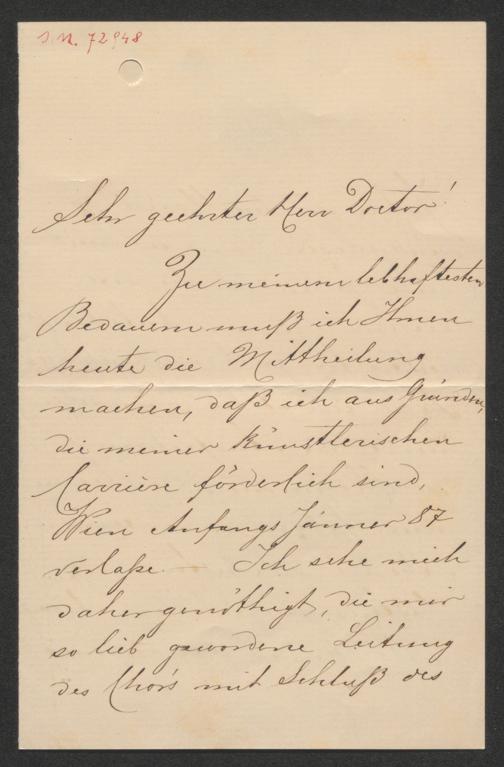 I.N. 72948
Sehr geehrter Herr Doctor!
Zu meinem lebhaftesten
Bedauern muß ich Ihnen
heute die Mittheilung
machen, daß ich aus Gründen,
die meiner künstlerischen
Carrière förderlich sind,
Wien Anfangs Jänner 87
verlaße. — Ich sehe mich
daher genöthigt, die mir
so lieb gewordene Leitung
des Chors mit Schluß des